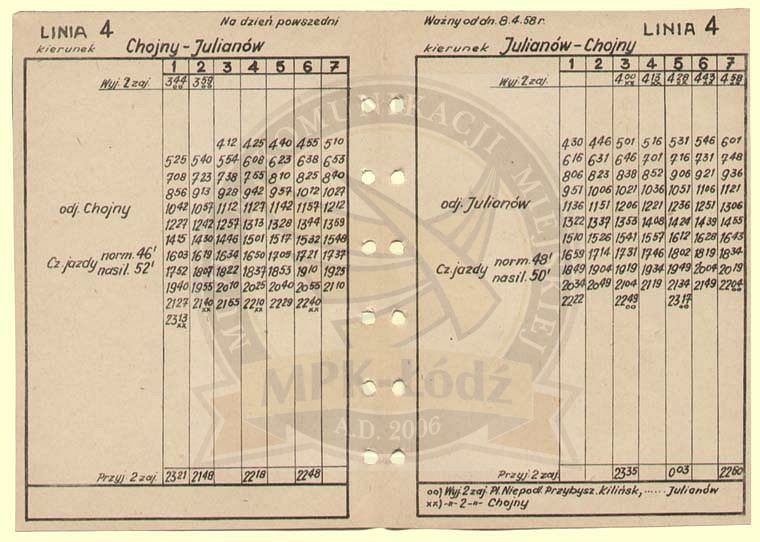 LINIA 4
Na dzień powszedni
kierunek Chojny-Julianów
1 2 3 4 5 6 7
Wyj. 2 zaj. 3 44 oo 3 59 oo
4 12 4 25 4 40 4 55 5 10
5 25 5 40 5 54 6 08 6 23 6 38 6 53
7 08 7 23 7 38 7 55 8 10 8 25 8 40
8 56 9 13 9 28 9 42 9 57 10 12 10 27
odj. Chojny
10 42 10 57 11 12 11 27 11 42 11 57 12 12
12 27 12 42 12 57 13 13 13 28 13 44 13 59
14 15 14 30 14 46 15 01 15 17 15 32 15 48
Cz. jazdy norm. 46'
nasil. 52'
16 03 16 19 16 34 16 50 17 05 17 21 17 37
17 52 18 07 18 22 18 37 18 53 19 10 19 25
19 40 19 55 20 10 20 25 20 40 20 55 21 10
21 27 21 40 xx 21 55 22 10 xx 22 29 22 40 xx
23 13 xx
Przyj. 2 zaj. 23 21 21 48 22 18 22 48
Ważny od dn. 8.4.58 r.
LINIA 4
kierunek Julianów-Chojny
1 2 3 4 5 6 7
Wyj. 2 zaj. 4 00 xx 4 13 xx 4 28 xx 4 43 xx 4 58 xx
4 30 4 46 5 01 5 16 5 31 5 46 6 01
6 16 6 31 6 46 7 01 7 16 7 31 7 48
8 06 8 23 8 38 8 52 9 06 9 21 9 36
9 51 10 06 10 21 10 36 10 51 11 06 11 21
odj. Julianów
11 36 11 51 12 06 12 21 12 36 12 51 13 06
13 22 13 37 13 53 14 08 14 24 14 39 14 55
15 10 15 26 15 41 15 57 16 12 16 28 16 43
Cz. jazdy norm. 48'
nasil. 50'
16 59 17 14 17 31 17 46 18 02 18 19 18 34
18 49 19 04 19 19 19 34 19 49 20 04 20 19
20 34 20 49 21 04 21 19 21 34 21 49 22 04 oo
22 22 22 49 oo 23 17 oo
Przyj. 2 zaj. 23 35 0 03 22 50
oo) Wyj. 2 zaj. Pl. Niepodl. Przybysz. Kilińsk, ...... Julianów
xx) -"- 2 -"- Chojny
KOMUNIKACJI MIEJSKIEJ
MPK-Łódź
A.D. 2006